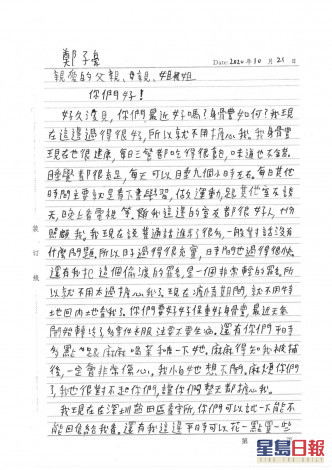 鄭子豪
Date: 2020年10月21日
親愛的父親、母親、姐姐
你們好！
好久沒見，你們最近好嗎？身體如何？我現
在這邊過得很好，所以就不用擔心我。我身體
現在也很健康，每日三餐都吃得很飽，味道也不錯。
睡覺都很充足，每天可以睡九個小時左右。每日其他
時間主要就是看下書學習，做下運動，跟其他室友談
天，晚上看電視等。而我這邊的室友都很好人，十分
照顧我。我現在說普通話進步了很多，一般對話沒有
什麼問題。所以日子過得很充實，日時間也過得很快。
還有我犯這個偷渡的罪名是一個非常輕的罪名，所
以就不用太過擔心我了。現在疫情期間，就不用特
地回內地看我了。你們要好好保重好身體，最近天氣
開始轉冷了，多穿件衣服注意不要生病。還有你們平時
多點 麻麻喝茶和陪一下她。麻麻得知我被捕
後，一定會非常傷心，我怕她想不開。麻煩你們
了，我也很對不起你們，讓你們整天都擔心我。
我現在在深圳鹽田區看守所，你們可以試一下能不
能回信給我看。還有我這邊平時可以花一點買一些
裝訂線
第
星島日報